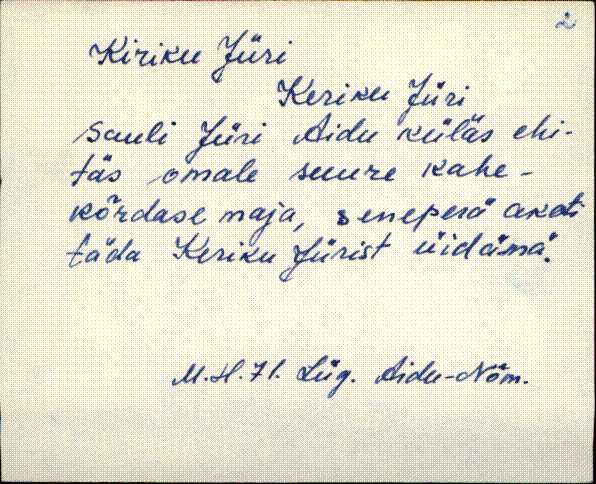 2
Kiriku Jüri
Keriku Jüri
Sauli Jüri Aidu küläs ehi-
täs omale suure kahe-
kõrdase maja, senepesä aketi
täda Keriku Jürist üidämä.
M.H. 71. Lüg. Aidu-Nõm.